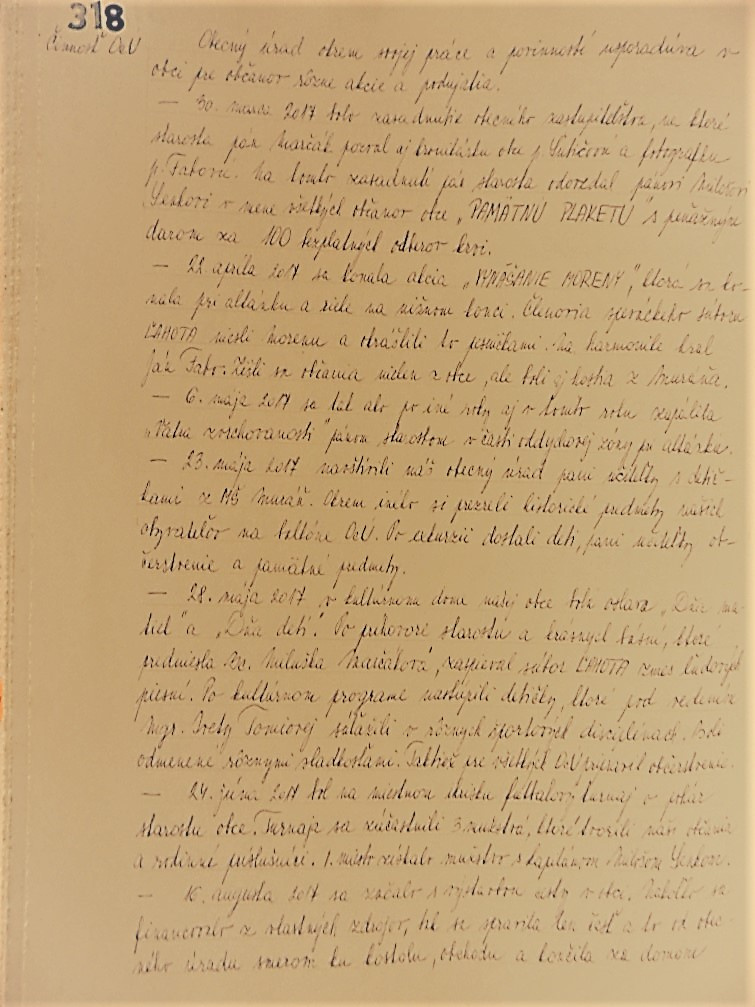 318
Činnosť OcÚ
Obecný úrad okrem svojej práce a povinností usporadúva v
obci pre občanov rôzne akcie a podujatia.
— 30. marca 2017 bolo zasadnutie obecného zastupiteľstva, na ktoré
starosta pán Marčák pozval aj kronikárku obce p. a fotografku
p. Fabovú. Na tomto zasadnutí pán starosta odovzdal pánovi Milošovi
v mene všetkých občanov obce „PAMÄTNÚ PLAKETU" s peňažným
darom za 100 bezplatných odberov krvi.
— 22. apríla 2017 sa konala akcia „VYNÁŠANIE MORENY", ktorá sa ko-
nala pri altánku a rieke na nižnom konci. Členovia speváckeho súboru
ĽAHOTA niesli Morenu a okrášlili to pesničkami. Na harmonike hral
Ján Fabo. Zišli sa občania nielen z obce, ale boli aj hostia z Muráňa.
— 6. mája 2017 sa tak ako po iné roky aj v tomto roku zapálila
„Vatra zvrchovanosti" pánom starostom v časti oddychovej zóny pri altánku.
— 23. mája 2017 navštívili náš obecný úrad pani učiteľky s detič-
kami z MŠ Muráň. Okrem iného si prezreli historické predmety našich
obyvateľov na balkóne OcÚ. Po exkurzii dostali deti, pani učiteľky ob-
čerstvenie a pamätné predmety.
— 28. mája 2017 v kultúrnom dome našej obce bola oslava „Dňa ma-
tiek" a „Dňa detí". Po príhovore starostu a krásnych básní, ktoré
predniesla Miluška Marčáková, zaspieval súbor ĽAHOTA zmes ľudových
piesní. Po kultúrnom programe nastúpili detičky, ktoré pod vedením
Mgr. Ivety Tomiovej súťažili v rôznych športových disciplínach. Boli
odmenené rôznymi sladkosťami. Taktiež pre všetkých OcÚ pripravil občerstvenie.
— 24. júna 2017 bol na miestnom ihrisku futbalový turnaj o pohár
starostu obce. Turnaja sa zúčastnili 3 mužstvá, ktoré tvorili naši občania
a rodinní príslušníci. 1. miesto získalo mužstvo s kapitánom Milošom
— 16. augusta 2017 sa začalo s výstavbou cesty v obci. Nakoľko sa
financovalo z vlastných zdrojov, tak sa spravila len časť a to od obec-
ného úradu smerom ku kostolu, obchodu a končila za domom